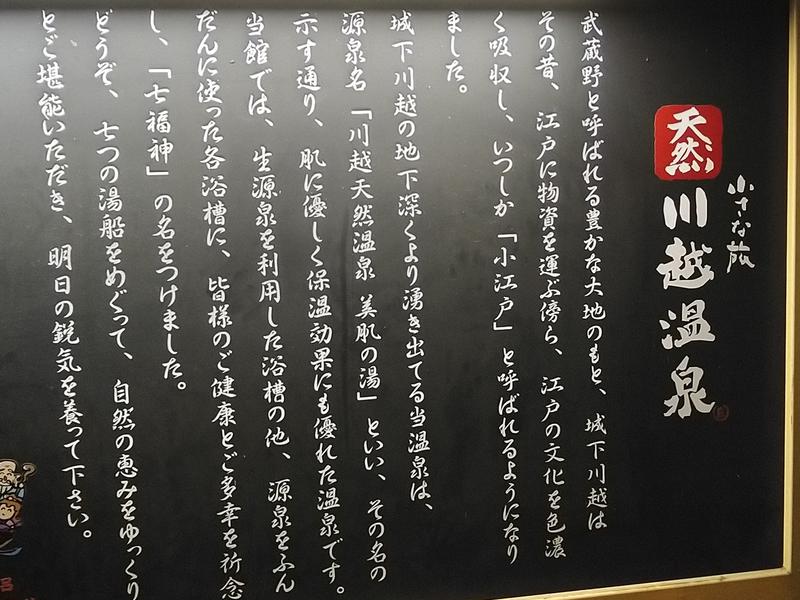 小さな旅
天然
川越温泉
武蔵野と呼ばれる豊かな大地のもと、城下川越は
その昔、江戸に物資を運ぶ傍ら、江戸の文化を色濃
く吸収し、いつしか「小江戸」と呼ばれるようになり
ました。
城下川越の地下深くより湧き出てる当温泉は、
源泉名「川越天然温泉 美肌の湯」といい、その名の
示す通り、肌に優しく保温効果にも優れた温泉です。
当館では、生源泉を利用した浴槽の他、源泉をふん
だんに使った各浴槽に、皆様のご健康とご多幸を祈念
し、「七福神」の名をつけました。
どうぞ、七つの湯船をめぐって、自然の恵みをゆっくり
とご堪能いただき、明日の鋭気を養って下さい。
呂